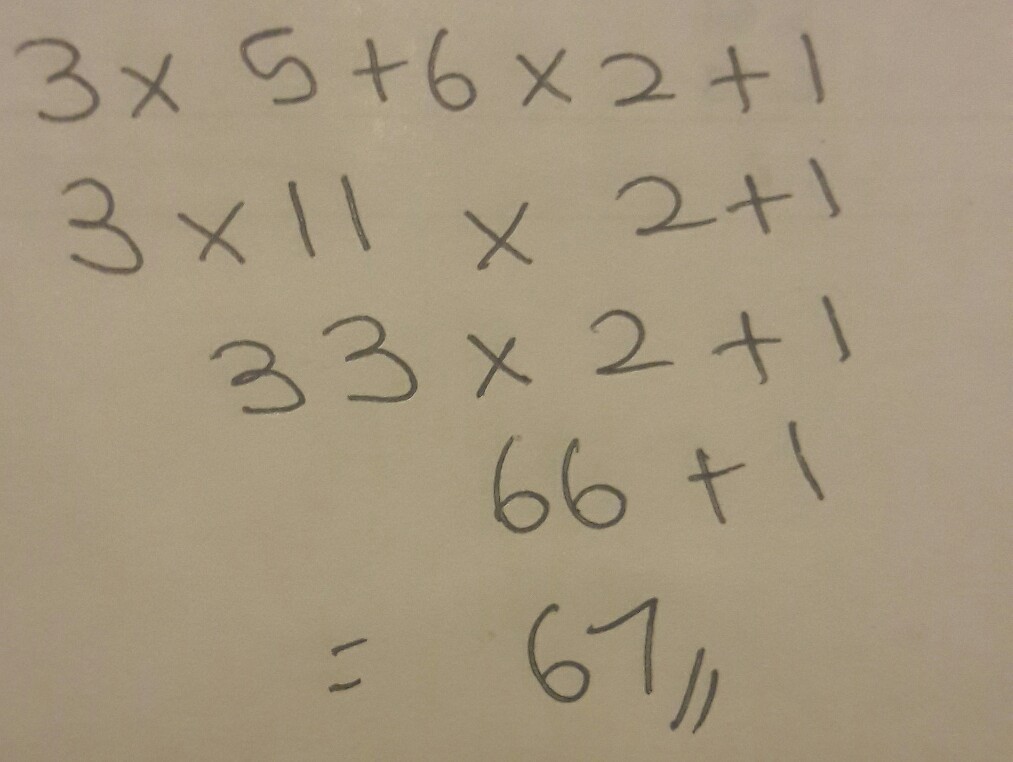 3 × 5 + 6 × 2 + 1
3 × 11 × 2 + 1
33 × 2 + 1
66 + 1
= 67,,